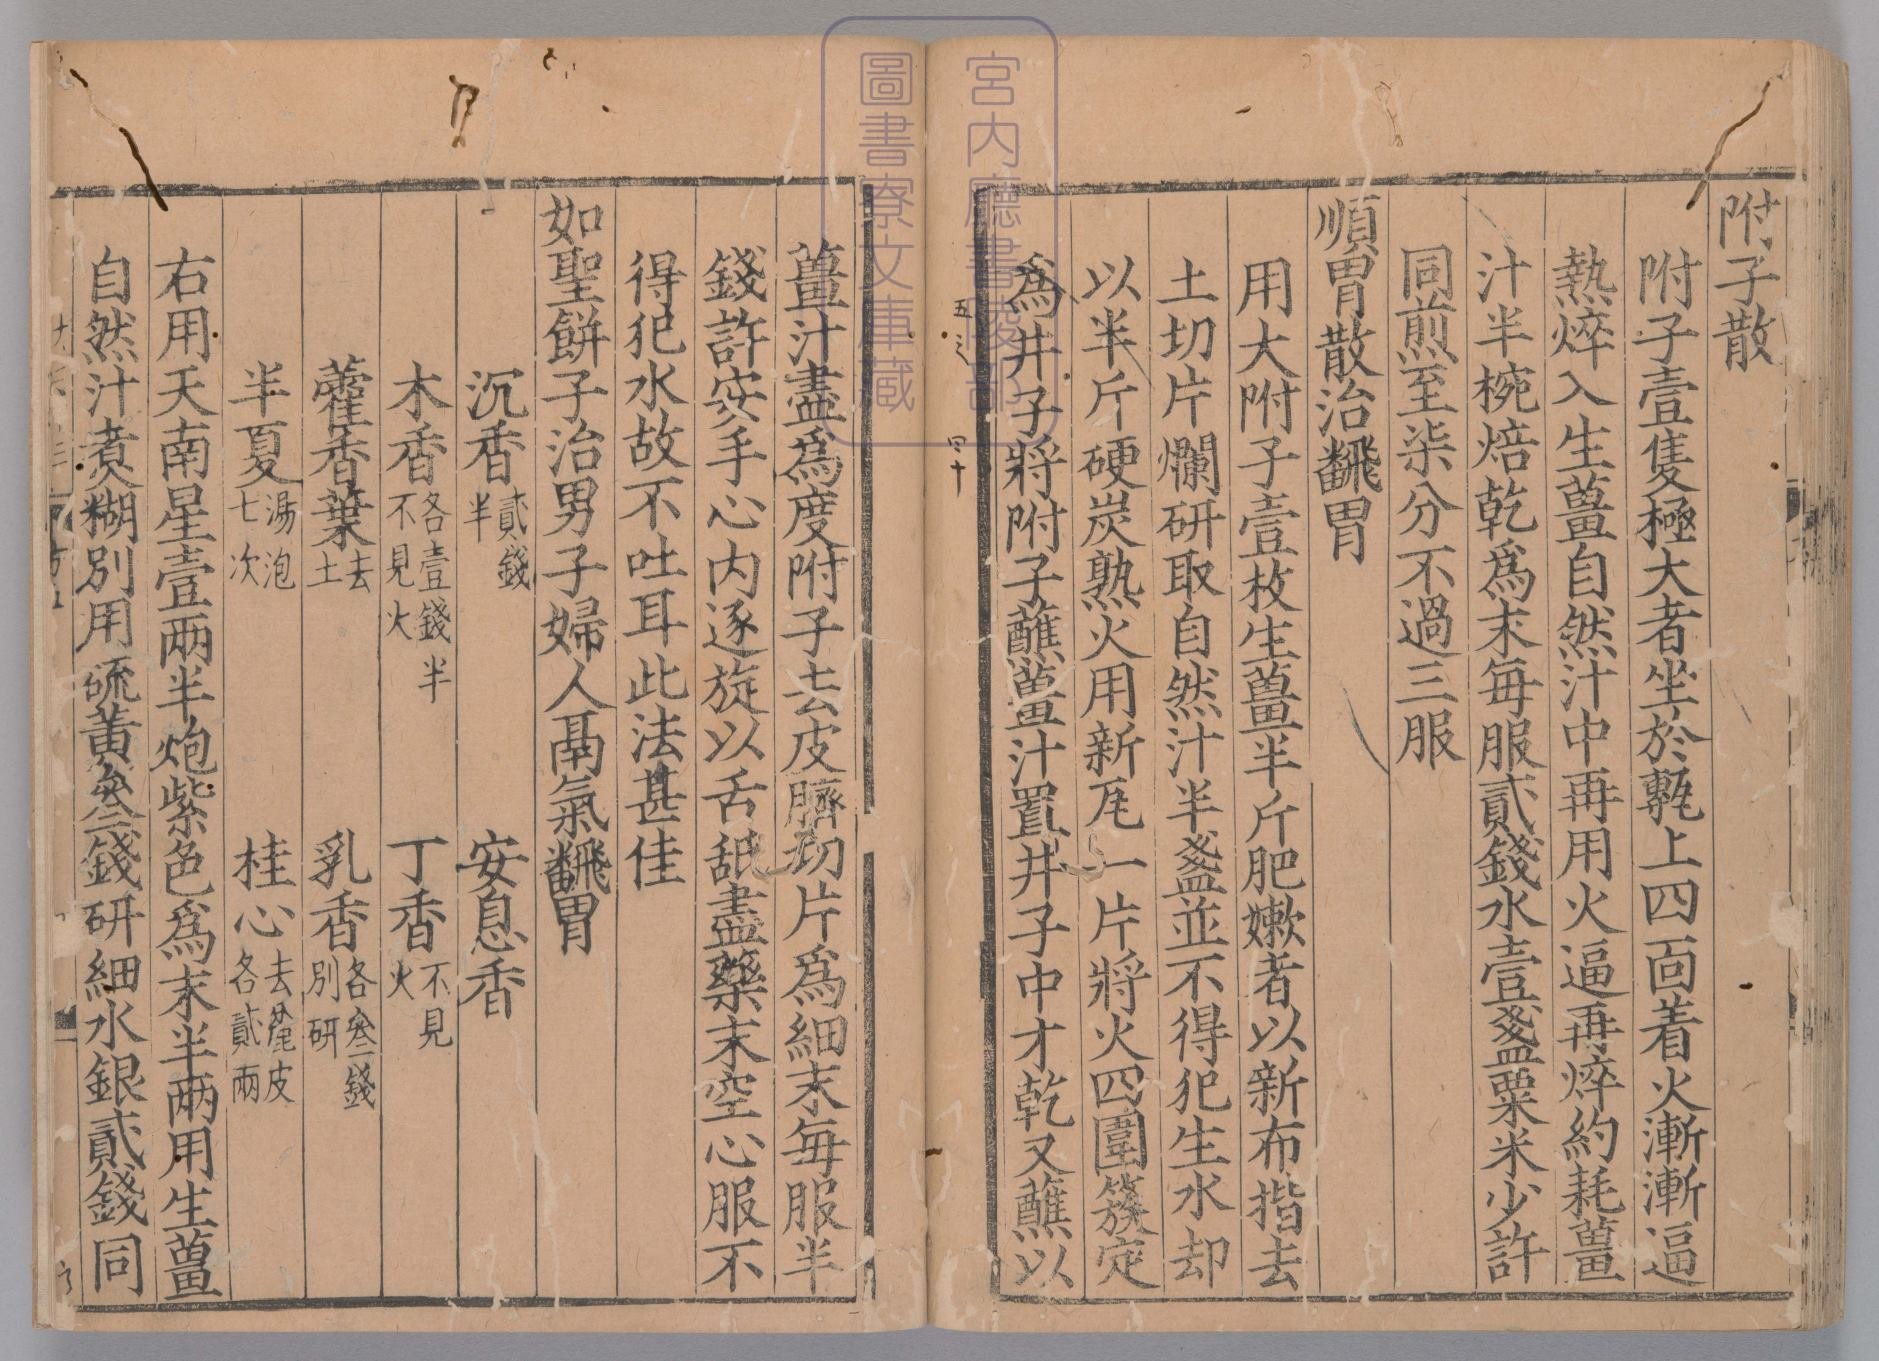 附子散
附子壹隻極大者坐於塼上四面着火漸漸逼
熱焠入生薑自然汁中再用火逼再焠約耗薑
汁半椀焙乾爲末每服貳錢水壹盞粟米少許
同煎至柒分不過三服
順胃散治飜胃
用大附子壹枚生薑半斤肥嫰者以新布揩去
土切片爛研取自然汁半盞並不得犯生水却
以半斤硬炭熟火用新瓦一片將火四圍簇定
爲井子將附子蘸薑汁置井子中才乾又蘸以
薑汁盡爲度附子去皮臍切片爲細末每服半
錢許安手心内逐旋以舌舐盡藥末空心服不
得犯水故不吐耳此法甚佳
如聖餅子治男子婦人鬲氣飜胃
沉香貳錢半 安息香
木香各壹錢半不見火 丁香不見火
藿香葉去土 乳香各叁錢別研
半夏湯泡七次 桂心去麄皮各貳兩
右用天南星壹兩半炮紫色爲末半兩用生薑
自然汁煑糊別用硫黃叁錢研細水銀貳錢同
宮内廳書陵部
圖書寮文庫藏